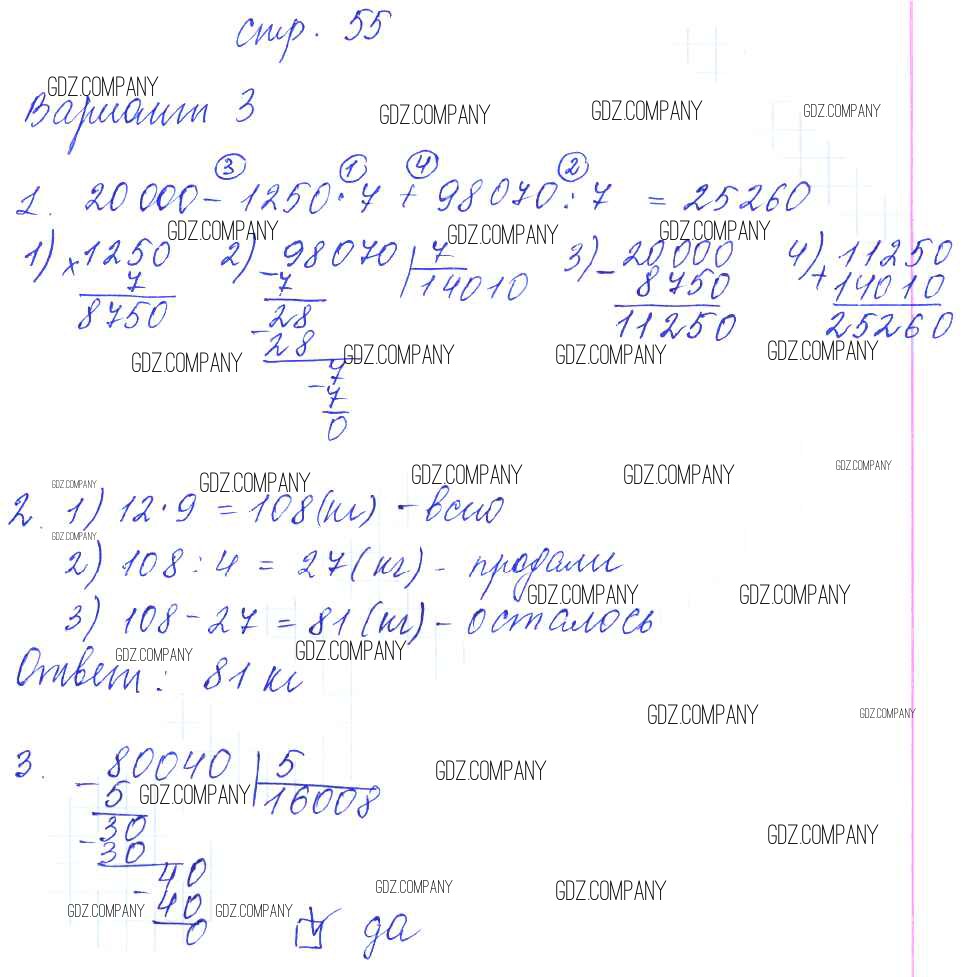 стр. 55
GDZ.COMPANY
Вариант 3
GDZ.COMPANY GDZ.COMPANY GDZ.COMPANY
3 1 4 2
1. 20 000 - 1250 · 7 + 98070 : 7 = 25260
GDZ.COMPANY GDZ.COMPANY GDZ.COMPANY
1) × 1250 2) 98070 | 7 3) - 20000 4) + 11250
7 - 7 14010 8750 14010
8750 28 11250 25260
- 28
GDZ.COMPANY GDZ.COMPANY GDZ.COMPANY GDZ.COMPANY
7
- 7
0
GDZ.COMPANY GDZ.COMPANY GDZ.COMPANY GDZ.COMPANY GDZ.COMPANY
2. 1) 12 · 9 = 108 (кг) - всего
GDZ.COMPANY
2) 108 : 4 = 27 (кг) - продали
GDZ.COMPANY GDZ.COMPANY
3) 108 - 27 = 81 (кг) - осталось
GDZ.COMPANY GDZ.COMPANY
Ответ: 81 кг
GDZ.COMPANY GDZ.COMPANY
3. 80040 | 5
GDZ.COMPANY
- 5 16008
GDZ.COMPANY
30
- 30
GDZ.COMPANY
40
- 40
GDZ.COMPANY GDZ.COMPANY GDZ.COMPANY GDZ.COMPANY
0 да